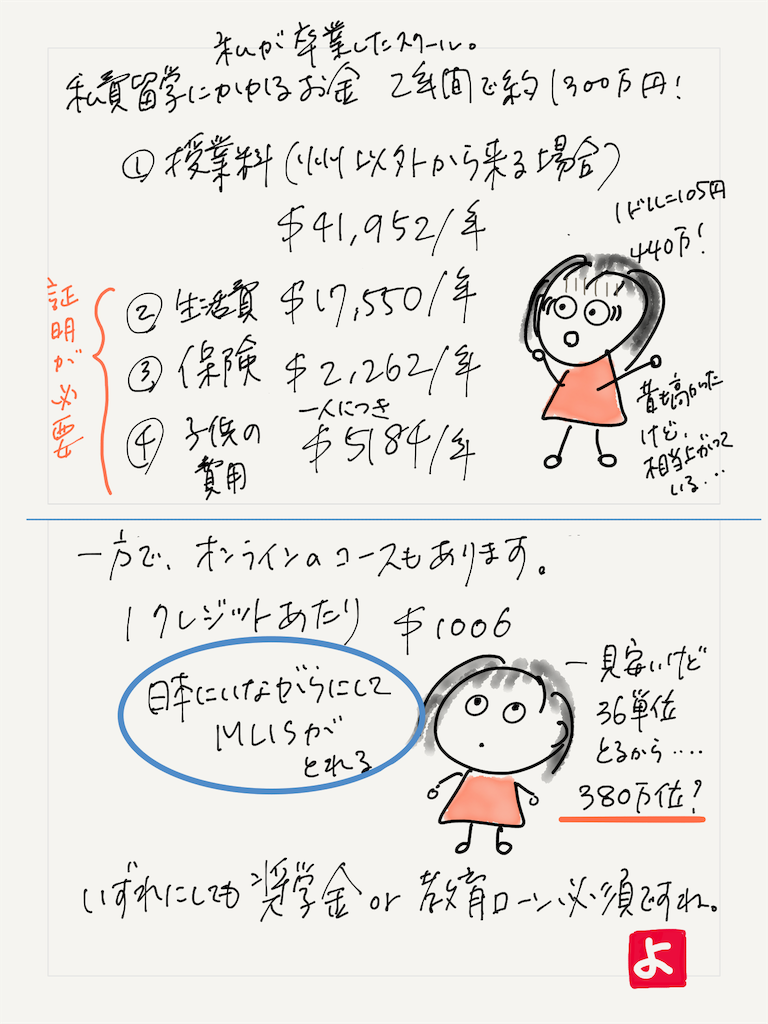 私が卒業したスクール。
私費留学にかかるお金 2年間で約1300万円！
① 授業料(州以外から来る場合)
$41,952/年
1ドル=105円
440万！
証明が必要
② 生活費 $17,550/年
③ 保険 $2,262/年
④ 子供の費用
一人につき
$5184/年
昔も高かった
けど、
相当上がって
いる…
一方で、オンラインのコースもあります。
1クレジットあたり $1006
日本にいながらにして
MLISが
とれる
一見安いけど
36単位
とるから‥‥
380万位？
いずれにしても 奨学金 or 教育ローン必須ですね。
よ